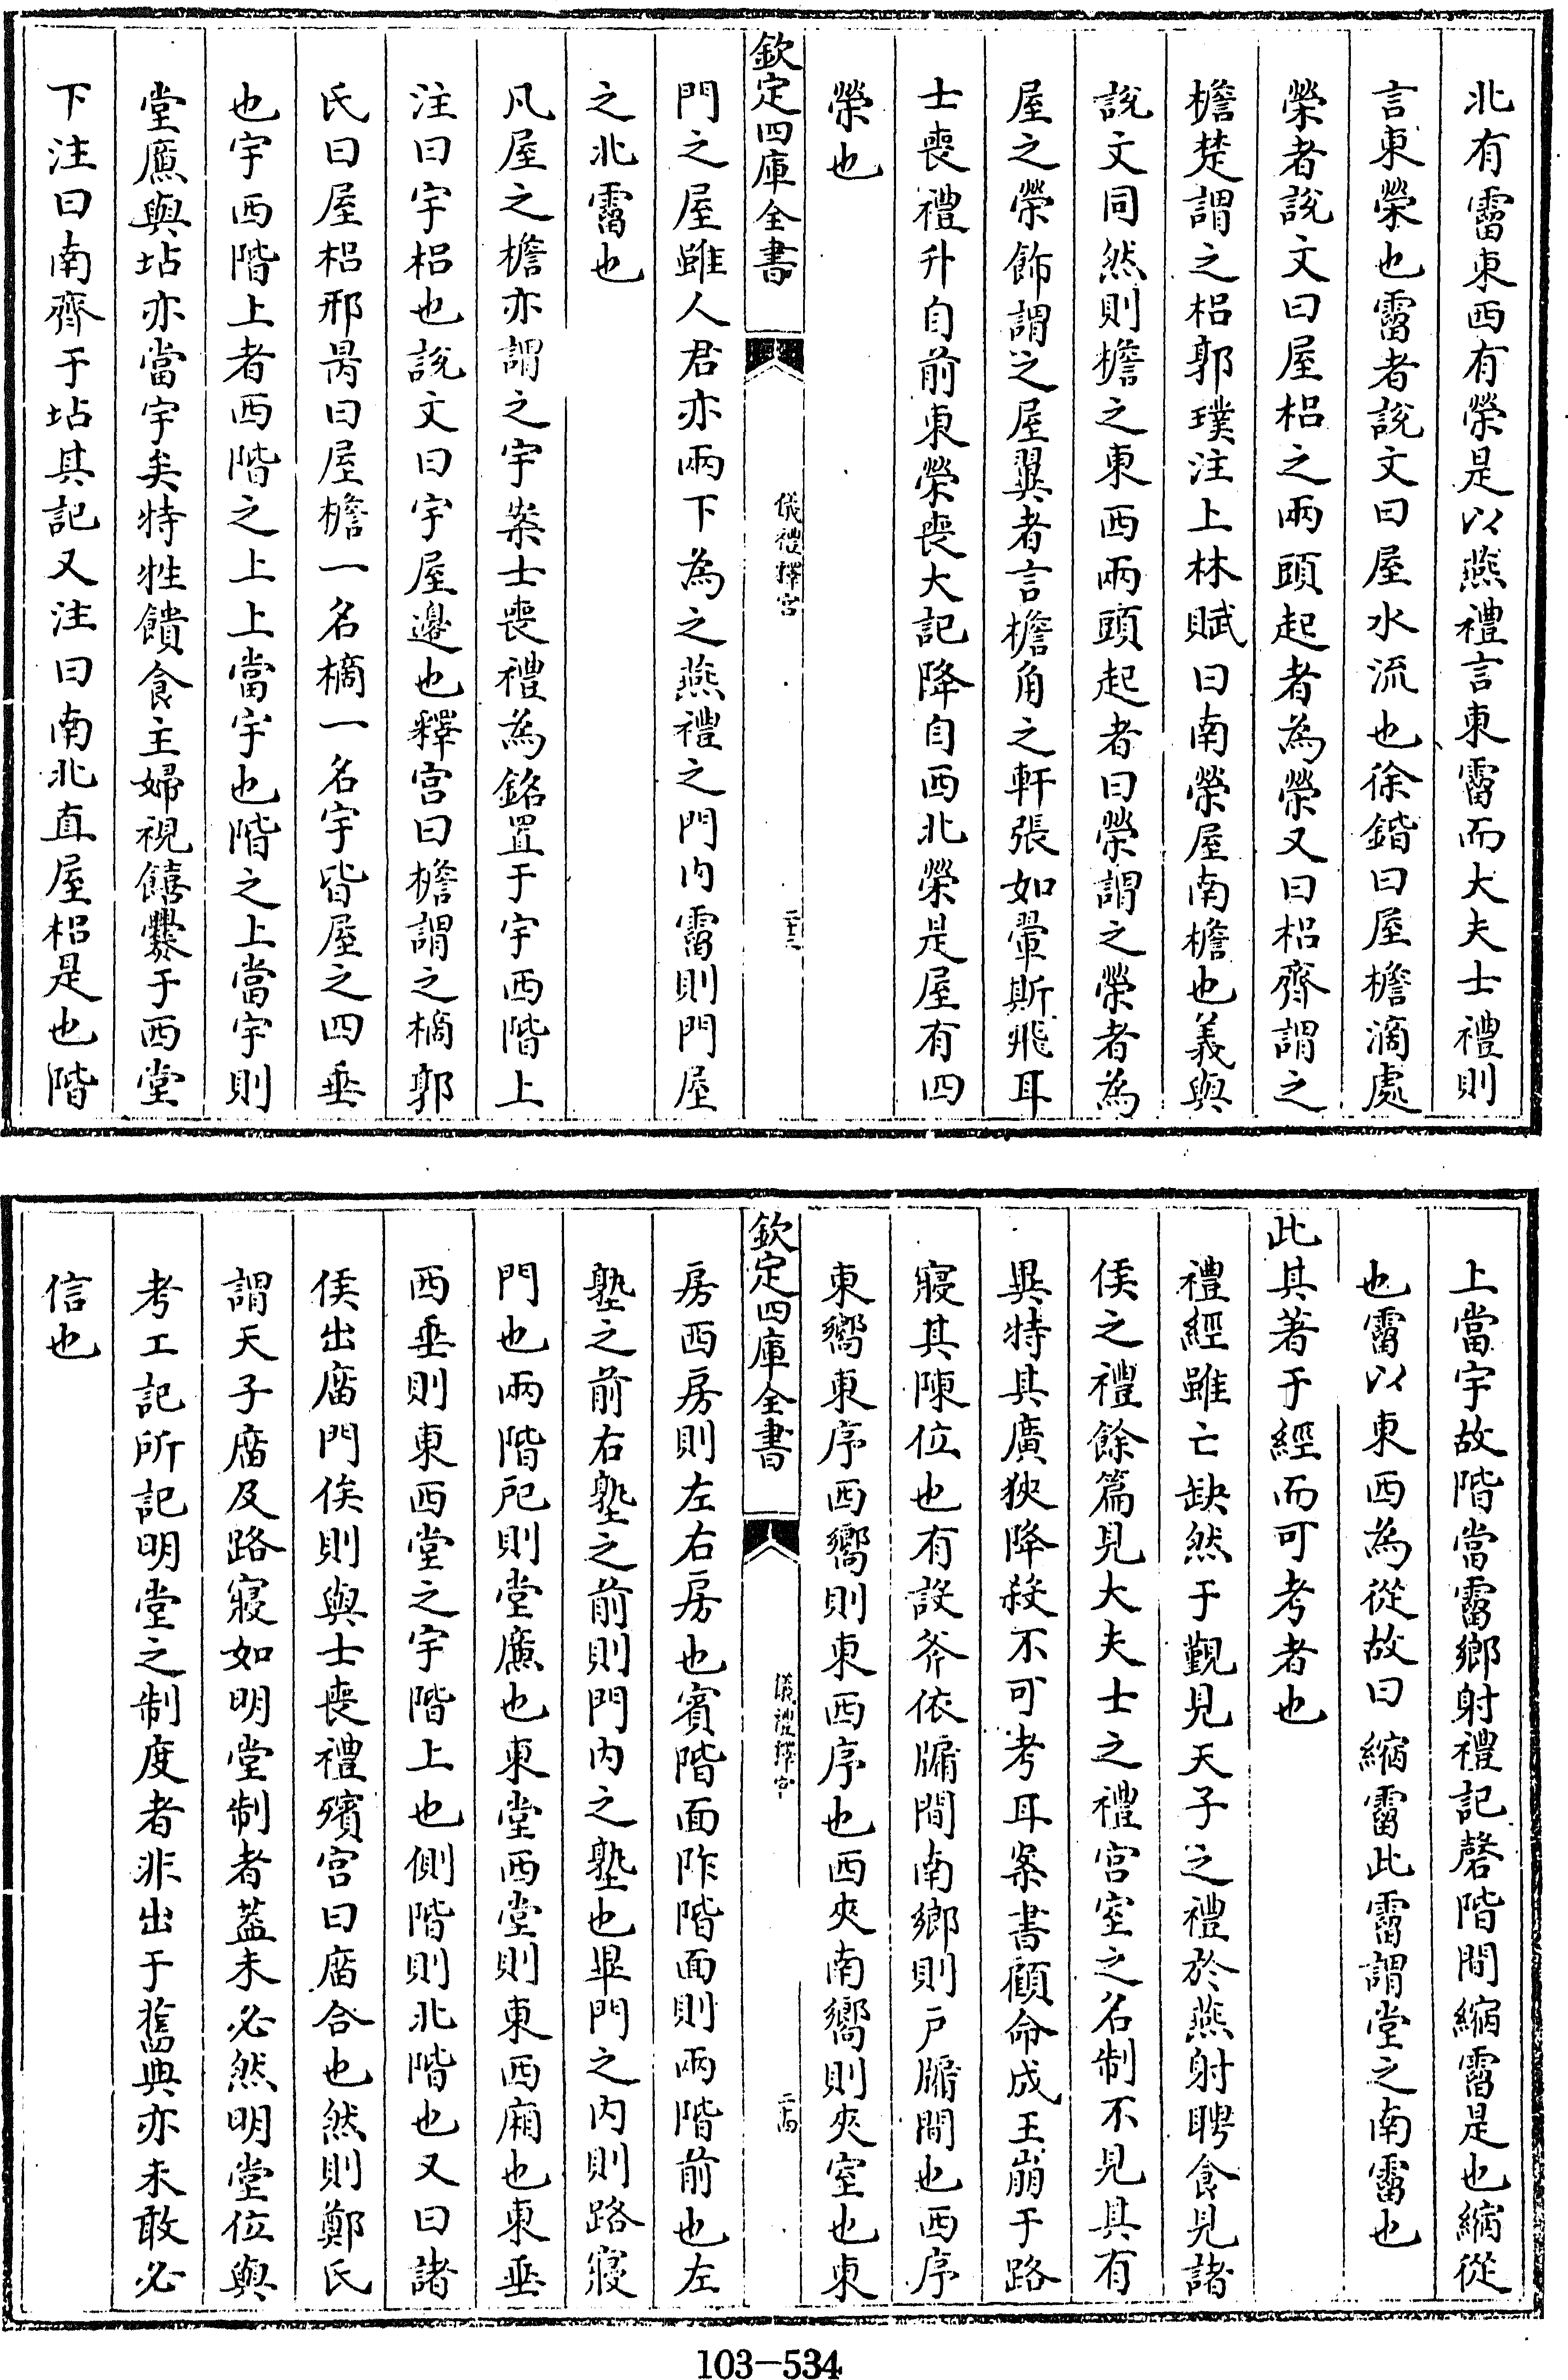 北有霤東西有榮是以燕禮言東霤而大夫士禮則
言東榮也霤者說文曰屋水流也徐鍇曰屋檐滴處
榮者說文曰屋梠之兩頭起者為榮又曰梠齊謂之
檐楚謂之梠郭璞注上林賦曰南榮屋南檐也義與
說文同然則檐之東西兩頭起者曰榮謂之榮者為
屋之榮飾謂之屋翼者言檐角之軒張如翬斯飛耳
士喪禮升自前東榮喪大記降自西北榮是屋有四
榮也
欽定四庫全書
儀禮釋宮
二十三
門之屋雖人君亦兩下為之燕禮之門內霤則門屋
之北霤也
凡屋之檐亦謂之宇案士喪禮為銘置于宇西階上
注曰宇梠也說文曰宇屋邊也釋宮曰檐謂之樀郭
氏曰屋梠邢昺曰屋檐一名樀一名宇皆屋之四垂
也宇西階上者西階之上上當宇也階之上當宇則
堂廉與坫亦當宇矣特牲饋食主婦視饎爨于西堂
下注曰南齊于坫其記又注曰南北直屋梠是也階
上當宇故階當霤鄉射禮記磬階間縮霤是也縮從
也霤以東西為從故曰縮霤此霤謂堂之南霤也
此其著于經而可考者也
禮經雖亡缺然于覲見天子之禮於燕射聘食見諸
侯之禮餘篇見大夫士之禮宮室之名制不見具有
異特其廣狹降殺不可考耳案書顧命成王崩于路
寢其陳位也有設斧依牖間南鄉則戶牖間也西序
東嚮東序西嚮則東西序也西夾南嚮則夾室也東
欽定四庫全書
儀禮釋宮
二十四
房西房則左右房也賓階面阼階面則兩階前也左
塾之前右塾之前則門內之塾也畢門之內則路寢
門也兩階戺則堂廉也東堂西堂則東西廂也東垂
西垂則東西堂之宇階上也側階則北階也又曰諸
侯出廟門俟則與士喪禮殯宮曰廟合也然則鄭氏
謂天子廟及路寢如明堂制者葢未必然明堂位與
考工記所記明堂之制度者非出于舊典亦未敢必
信也
103-534